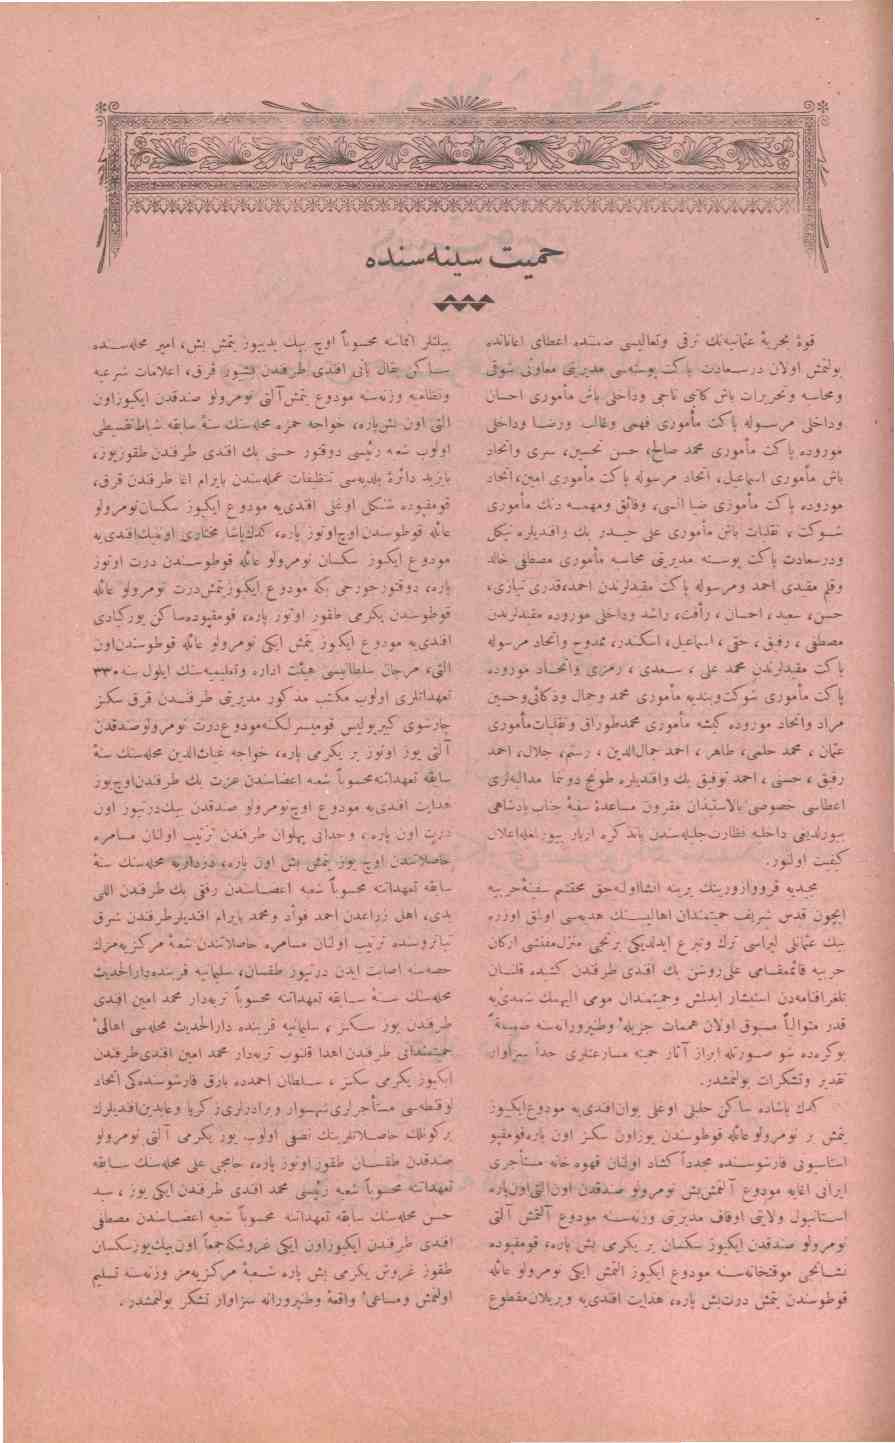 حمیت سینه‌سنده
قوهٔ بحریهٔ عثمانیه‌نك ترقی وتعالیسی ضمننده اعطای اعاناتده
بولنمش اولان درسعادت پاكت پوسته‌سی مدیریتی معاونی شوقی
ومحاسبه وتحریرات باش كاتبی ناجی وداخلی باش مأموری احسان
وداخلی مرسوله پاكت مأموری فهمی وغالب ورضا وداخلی
موروده پاكت مأموری محمد صالح، حسن تحسین، سری واتحاد
باش مأموری اسماعیل، اتحاد مرسوله پاكت مأموری امین، اتحاد
موروده پاكت مأموری ضیا انسی، وثائق ومهمه دنك مأموری
شوكت، نقلیات باش مأموری علی حیدر بك وافندیلرله نیكل
ودرسعادت پاكت پوسته مدیریتی محاسبه مأموری مصطفی خالد
وقلم مقیدی احمد ومرسوله پاكت مقیدلرندن احمد، قدری نیازی،
حسن، سعید، احسان، رأفت، راشد وداخلی موروده مقیدلرندن
مصطفی، رفیق، حقی، اسماعیل، اسكندر، ممدوح واتحاد مرسوله
پاكت مقیدلرندن محمد علی، سعدی، رمزی واتحاد موروده
پاكت مأموری شوكت وبندیه مأموری محمد وجمال وذكائی وحسین
مراد واتحاد موروده كیشه مأموری محمد طوراق ونقلیات مأموری
عثمان، محمد حلمی، طاهر، احمد جمال‌الدین، رستم، جلال، احمد
رفیق، حسنی، احمد توفیق بك وافندیلره طونج دونما مدالیه‌لری
اعطاسی خصوصی بالاستیذان مقرون مساعدهٔ سنیهٔ جناب پادشاهی
بیورلدیغی داخلیه نظارت جلیله‌سندن باتذكره ازبار بیورلمغله اعلان
كیفیت اولنور.
مجیدیه قرووازورینك یرینه انشا اوله‌جق محتشم سفینهٔ حربیه
ایچون قدس شریف حمیتمندان اهالیسنك هدیه‌سی اولمق اوزره
بیك عثمانلی لیراسی ترك وتبرع ایدلدیكی برنجی منزل مفتشی اركان
حربیه قائممقامی علی روشن بك افندی طرفندن كشیده قلنان
تلغرافنامه‌دن استبشار ایدلمش وحمیتمندان مومی الیهمك شمدی‌یه
قدر متوالیاً مسبوق اولان هممات جزیلهٔ وطنپرورانه‌سنه ضمیمةً
بوكره‌ده شو صورتله ابراز آثار حمیته مسارعتلری جداً سزاوار
تقدیر وتشكرات بولنمشدر.
كدك پاشاده ساكن حلبلی اوغلی یوان افندی‌یه مودوع ایكیوز
یتمش بر نومرولو عائله قوطوسندن یوز اون سكز اون پاره قومقپو
استاسیونی قارشوسنده مجدداً كشاد اولنان قهوه خانه مستأجری
ایرانی اغایه مودوع آلتمش بش نومرولو صندقدن اون التی اون پاره
استانبول ولایتی اوقاف مدیریتی وزنه‌سنه مودوع آلتمش آلتی
نومرولو صندقدن ایكیوز سكسان بر یكرمی بش پاره، قومقپوده
نشانجی موقتخانه‌سنه مودوع ایكیوز التمش ایكی نومرولو عائله
قوطوسندن یتمش درت بش پاره، هدایت افندی‌یه ویریلان مقطوع
بیلتلر اثمانه محسوباً اوچ بیك یدییوز یتمش بش، امیر محله‌سنده
ساكن بقال یانی افندی طرفندن قرق، اعلامات شرعیه
ونظامیه وزنه‌سنه مودوع یتمش آلتی نومرولو صندقدن ایكیوز اون
التی اون بش پاره، خواجه حمزه محله‌سنك سنهٔ سابقه شباط تقسیطی
اولوب شعبه رئیسی دوقتور حسنی بك افندی طرفندن طقوز یوز،
بایزید دائرهٔ بلدیه‌سی تنظیفات عمله‌سندن بایرام اغا طرفندن قرق،
قومقپوده شنكل اوغلی افندی‌یه مودوع ایكیوز سكسان نومرولو
عائله قوطوسندن اوچ اوتوز پاره، كدك پاشا مختاری اونیك افندی‌یه
مودوع ایكیوز سكسان نومرولو عائله قوطوسندن درت اوتوز
پاره، دوقتور جورجی بكه مودوع ایكیوز یتمش درت نومرولو عائله
قوطوسندن یكرمی طقوز اوتوز پاره، قومقپوده ساكن یوركیادی
افندی‌یه مودوع ایكیوز یتمش ایكی نومرولو عائله قوطوسندن اون
التی، مرجان سلطانیسی هیئت اداره وتعلیمیه‌سنك ایلول سنه ٣٣٠
تعهداتلری اولوب مكتب مذكور مدیریتی طرفندن قرق سكز
چارشوی كبیر پولیس قومیسرلكنه مودوع درت نومرولو صندقدن
آلتی یوز اوتوز بر یكرمی پاره، خواجه غیاث‌الدین محله‌سنك سنهٔ
سابقه تعهداتنه محسوباً شعبه اعضاسندن عزت بك طرفندن اوچ یوز
هدایت افندی‌یه مودوع اوچ نومرولو صندقدن بیك درتیوز اون
درت اون پاره، وجدانی پهلوان طرفندن ترتیب اولنان مسامره
حاصلاتندن اوچ یوز یتمش بش اون پاره، محله‌سنك سنهٔ
سابقه تعهداتنه محسوباً شعبه اعضاسندن رفقی بك طرفندن اللی
یدی، اهل زراعدن احمد فوآد ومحمد بایرام افندیلر طرفندن شرق
تیاتروسنده ترتیب اولنان مسامره حاصلاتندن شعبهٔ مركزیه‌مزك
حصه‌سنه اصابت ایدن درتیوز طقسان، سلیمانیه قربنده دارالحدیث
محله‌سنك سنهٔ سابقه تعهداتنه محسوباً تربه‌دار محمد امین افندی
طرفندن یوز سكز، سلیمانیه قربنده دارالحدیث محله‌سی اهالیٔ
حمیتمندانی طرفندن اهدا قلنوب تربه‌دار محمد امین افندی طرفندن
ایكیوز یكرمی سكز، سلطان احمدده پارق قارشوسنده‌كی اتحاد
لوقنطه‌سی مستأجرلری شهسوار وبرادرلری زكریا وعابدین افندیلرك
بر كونلك حاصلاتلرینك نصفی اولوب یوز یكرمی آلتی نومرولو
صندقدن طقسان طقوز اوتوز پاره، حاجی علی محله‌سنك سابقه
تعهداتنه محسوباً شعبه رئیسی محمد افندی طرفندن ایكی یوز، سید
حسن محله‌سنك سابقه تعهداتنه محسوباً شعبه اعضاسندن مصطفی
افندی طرفندن ایكیوز اون ایكی غروشكه جمعاً اون بیك یوز سكسان
طقوز غروش یكرمی بش پاره شعبهٔ مركزیه‌مز وزنه‌سنه تسلیم
اولنمش ومساعیٔ واقعهٔ وطنپرورانه سزاوار تشكر بولنمشدر.